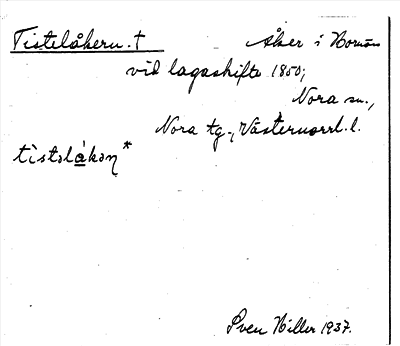 Tistelåkern. † Åker i Bornön
vid lagaskifte 1850,
Nora sn.,
Nora tg., Västernorrl. l.
tìstəlákəṇ*
Sven Hiller 1937.